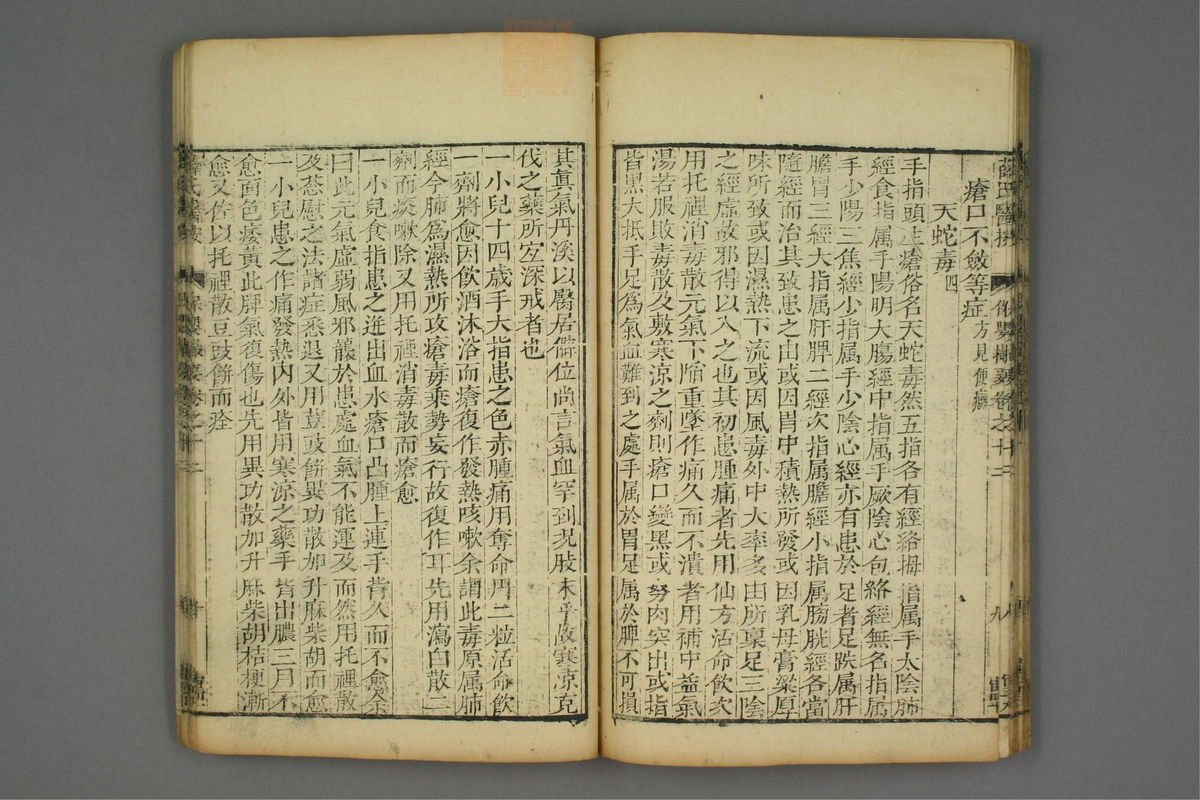 薛氏醫按
保嬰撮要卷之十二
瘡口不斂等症方見便癰
天蛇毒四
手指頭生瘡俗名天蛇毒然五指各有經絡拇指属手太陰肺
經食指属手陽明大膓經中指属手厥陰心包絡經無名指属
手少陽三焦經小指属手少陰心經亦有患於足者足趺属肝
膽胃三經大指属肝脾二經次指属膽經小指属膀胱經各當
隨經而治其致患之由或因胃中積熱所發或因乳母膏粱厚
味所致或因濕熱下流或因風毒外中大率多由所稟足三陰
之經虛故邪得以入之也其初患腫痛者先用仙方活命飲次
用托裡消毒散元氣下陷重墜作痛久而不潰者用補中益氣
湯若服敗毒散及敷寒涼之劑則瘡口變黑或努肉突出或指
皆黑大抵手足為氣血難到之處手属於胃足属於脾不可損
其真氣丹溪以臀居僻位尚言氣血罕到况肢末乎故寒凉克
伐之藥所宜深戒者也
一小兒十四歳手大指患之色赤腫痛用奪命丹二粒活命飲
一劑將愈因飲酒沐浴而瘡復作發熱咳嗽余謂此毒原属肺
經今肺為濕熱所攻瘡毒乗勢妄行故復作耳先用瀉白散二
劑而痰嗽除又用托裡消毒散而瘡愈
一小兒食指患之迸出血水瘡口凸腫上連手背久而不愈余
曰此元氣虛弱風邪襲於患處血氣不能運及而然用托裡散
及葱慰之法諸症悉退又用荳豉餅異功散加升麻柴胡而愈
一小兒患之作痛發熱内外皆用寒凉之藥手背出膿三月不
愈面色痿黃此脾氣復傷也先用異功散加升麻柴胡桔梗漸
愈又佐以托裡散豆豉餅而痊